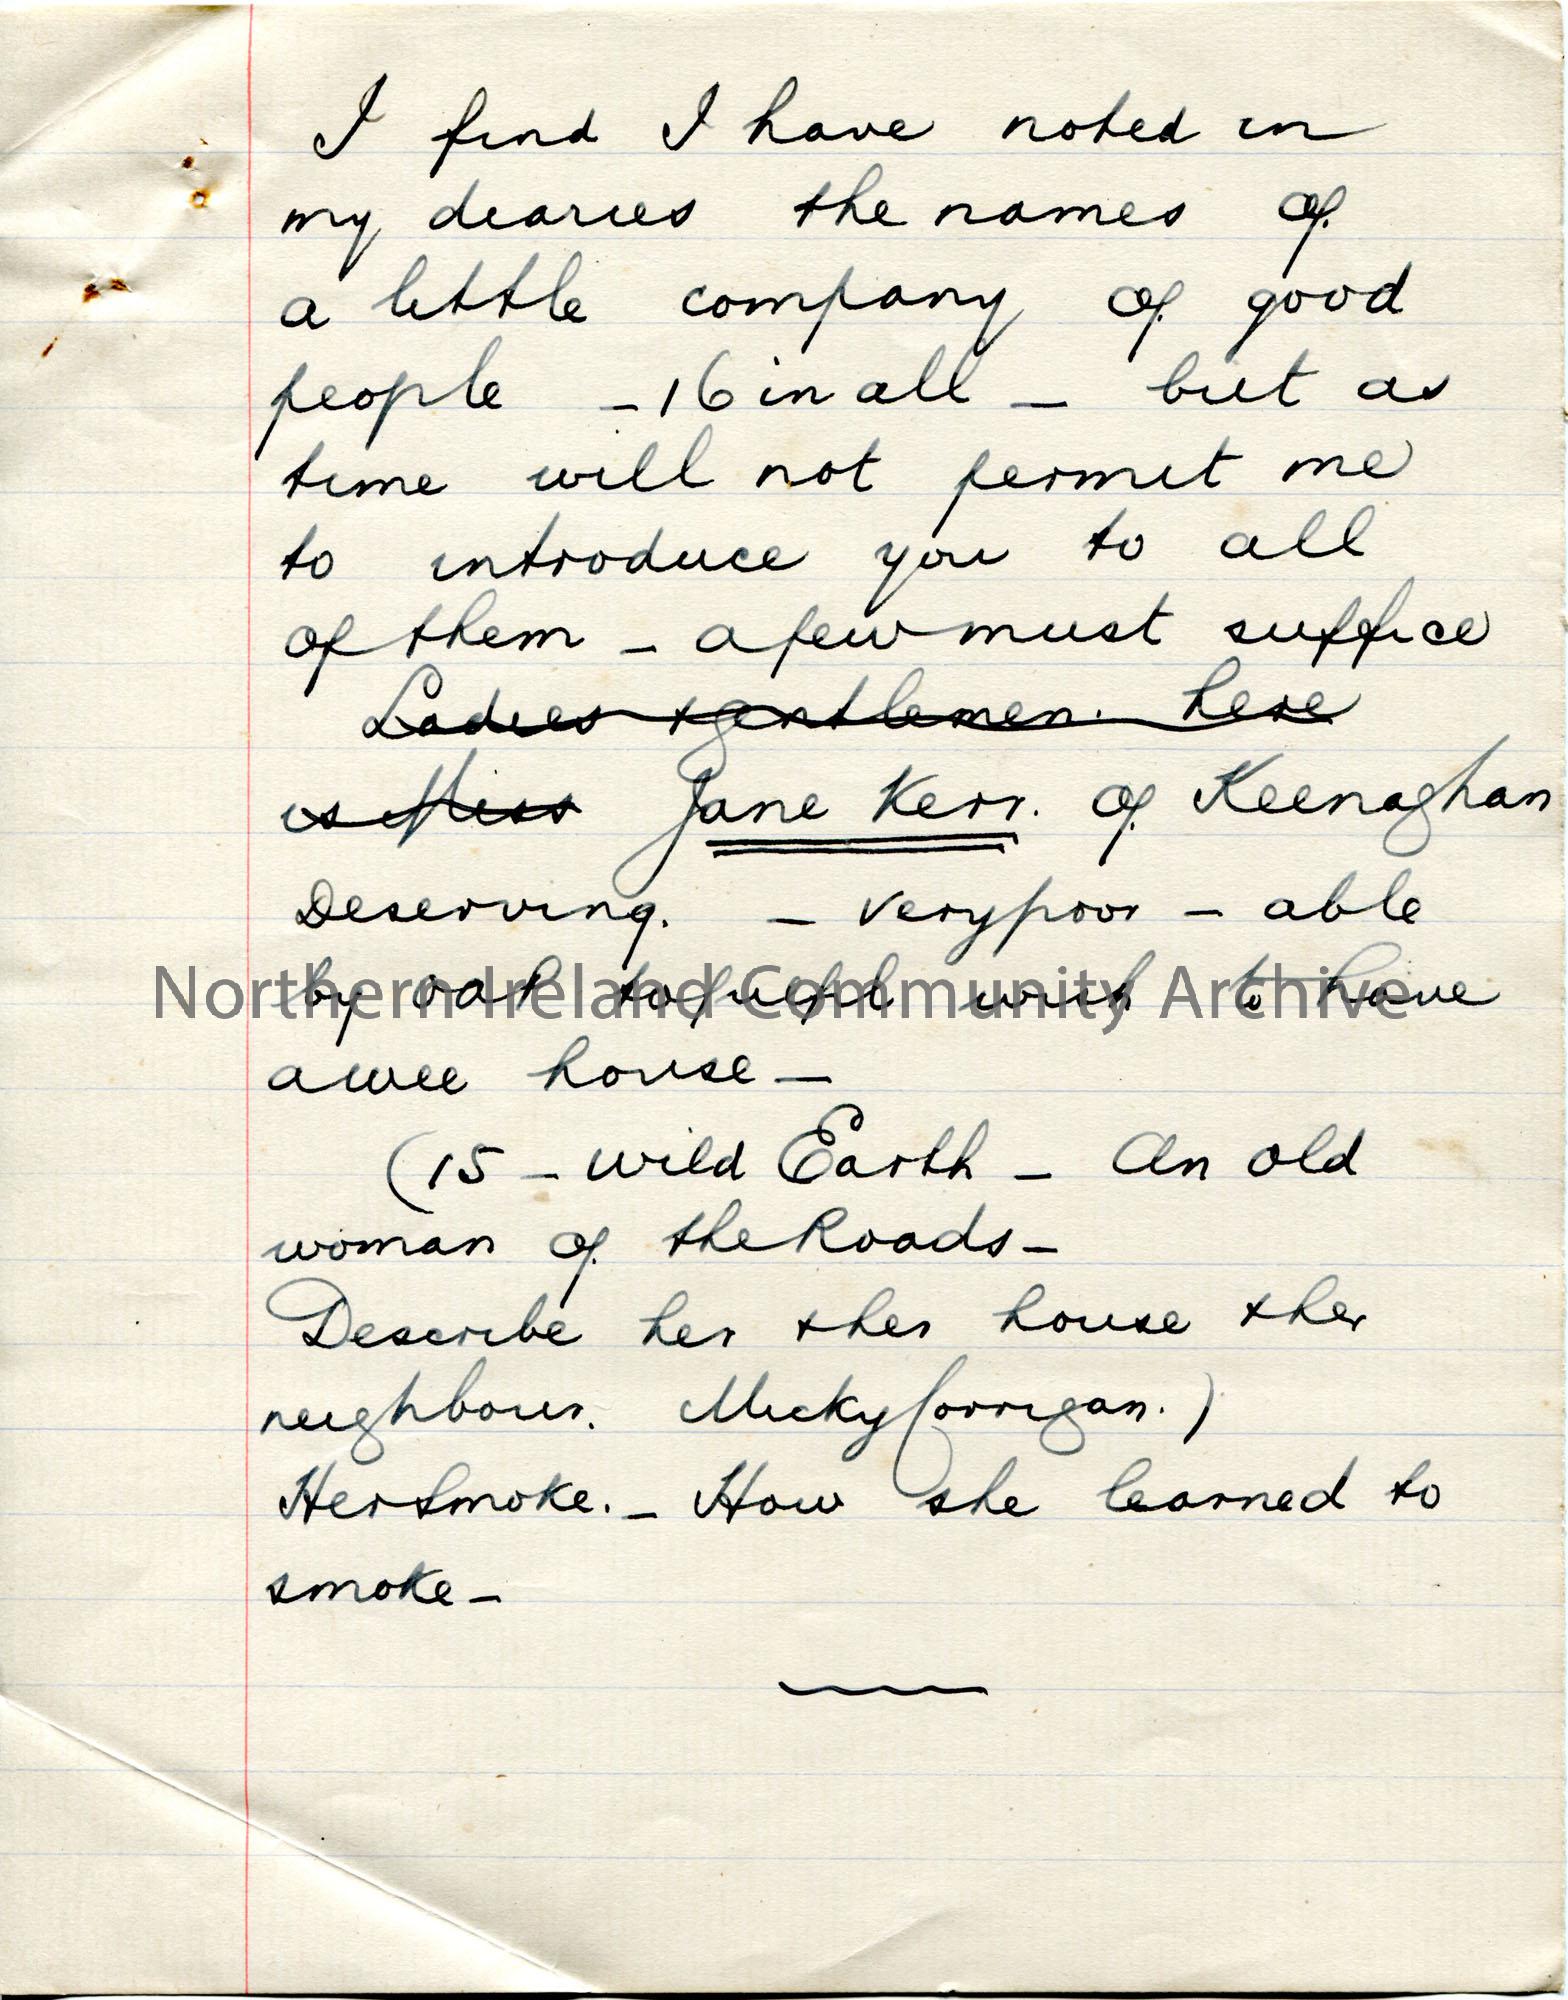 I find I have noted in
my diaries the names of
a little company of good
people - 16 in all - but as
time will not permit me
to introduce you to all
of them - a few must suffice
Ladies & gentlemen. here
is Miss Jane Kerr. of Keenaghan
Deserving. - very poor - able
by oap to fulfil wish to have
a wee house -
Northern Ireland Community Archive
(15 - wild Earth - An old
woman of the Roads -
Describe her & her house & her
neighbour. Micky Corrigan.)
Her smoke. - How she learned to
smoke -